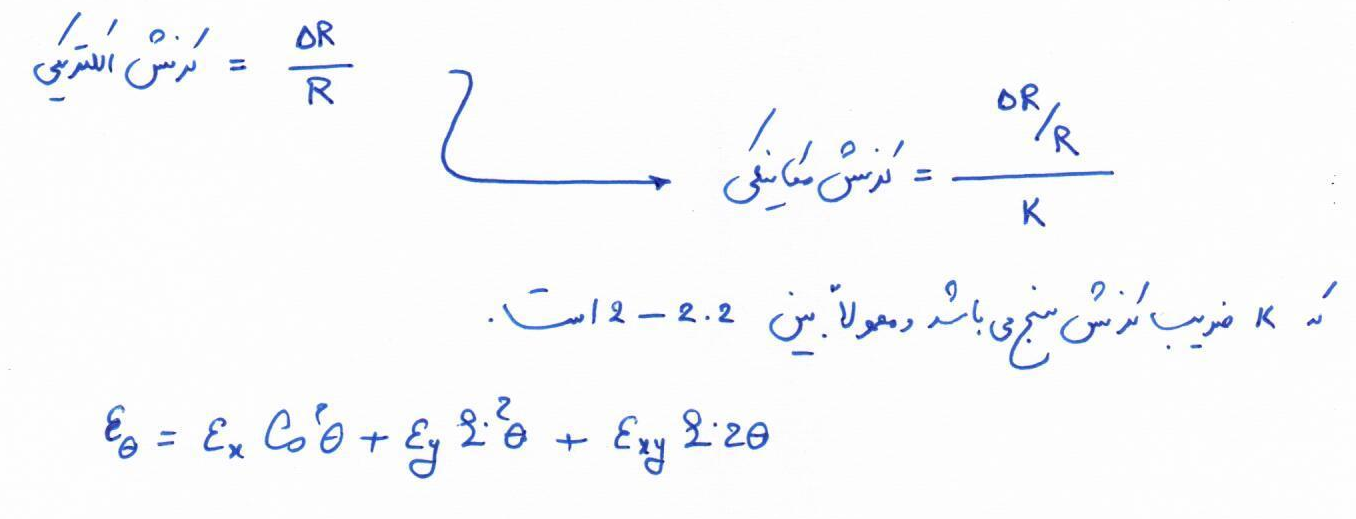 کرنش الکتریکی = ΔR / R
کرنش مکانیکی = (ΔR/R) / K
که K ضریب کرنش سنج می باشد و معمولاً بین 2 – 2.2 است.
ε_θ = ε_x Cos²θ + ε_y Sin²θ + ε_xy Sin 2θ